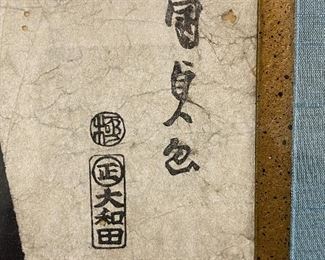 国貞画
極
正大和田